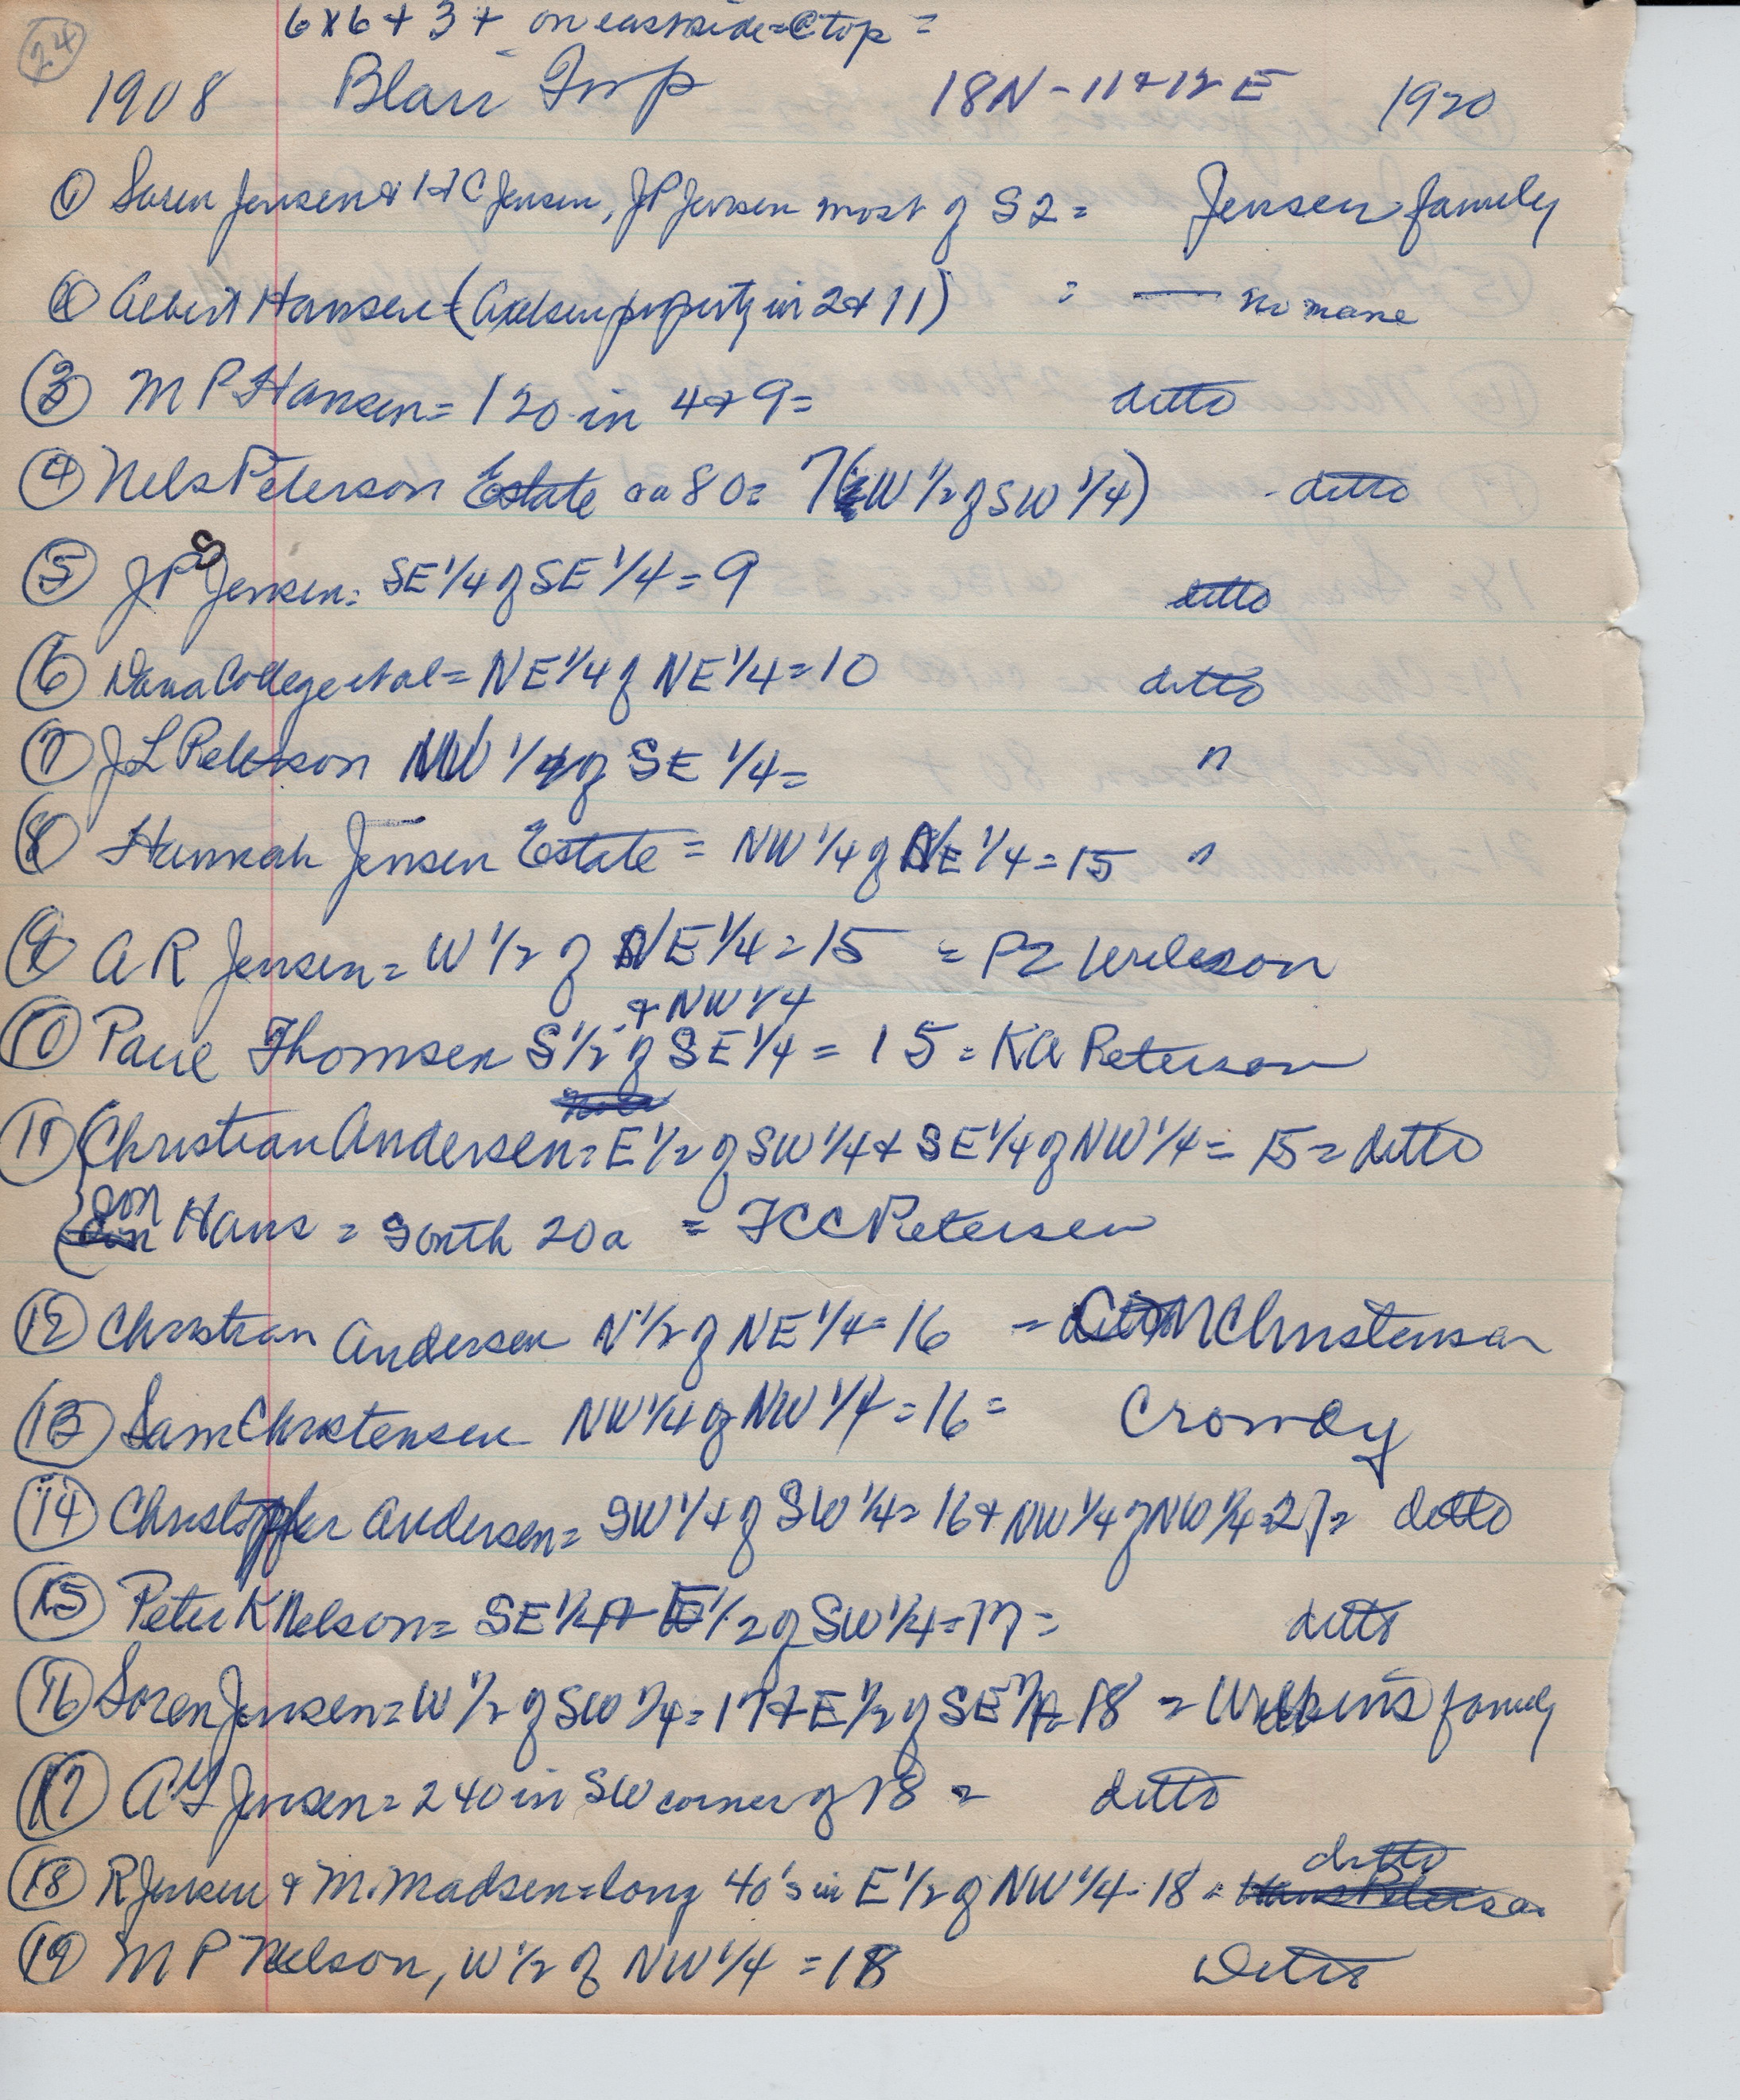 24
6x6 + 3+ on east side = @ top =
1908 Blair Twp 18N - 11 & 12 E 1920
① Soren Jensen & H C Jensen, J P Jensen most of S2 = Jensen family
② Albert Hansen = (property in 2 & 11) = — no name
③ M P Hansen = 120 in 4 & 9 = ditto
④ Nels Peterson Estate 80 = 7 (W 1/2 of SW 1/4) - ditto
⑤ J P S Jensen = SE 1/4 of SE 1/4 = 9 ditto
⑥ Dana College et al = NE 1/4 of NE 1/4 = 10 ditto
⑦ J L Peterson NW 1/4 of SE 1/4 = "
⑧ Hannah Jensen Estate = NW 1/4 of NE 1/4 = 15 "
⑨ A R Jensen = W 1/2 of NE 1/4 = 15 = P Z Wilkson
& NW 1/4
⑩ Paul Thomsen S 1/2 of SE 1/4 = 15 = K A Peterson
⑪ Christian Andersen = E 1/2 of SW 1/4 & SE 1/4 of NW 1/4 = 15 = ditto
son Hans = South 20 a = F C C Petersen
⑫ Christian Andersen N 1/2 of NE 1/4 = 16 = C M Christensen
⑬ Sam Christensen NW 1/4 of NW 1/4 = 16 = Crowdy
⑭ Christoffer Andersen = SW 1/4 of SW 1/4 = 16 & NW 1/4 of NW 1/4 = 21 = ditto
⑮ Peter K Nelson = SE 1/4 & E 1/2 of SW 1/4 = 17 = ditto
⑯ Soren Jensen = W 1/2 of SW 1/4 = 17 & E 1/2 of SE 1/4 = 18 = Wilkins family
⑰ A Jensen = 240 in SW corner of 18 = ditto
ditto
⑱ R Jensen & M. Madsen = long 40's in E 1/2 of NW 1/4 - 18 = Hans Peterson
⑲ M P Nelson, W 1/2 of NW 1/4 = 18 Ditto